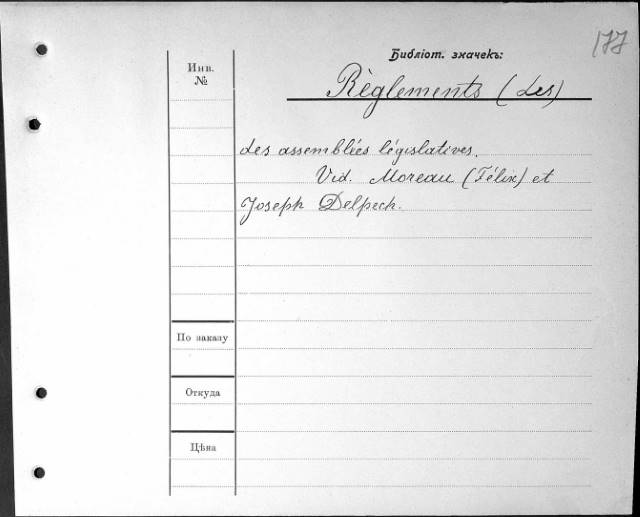 177
Библіот. значекъ:
Инв.
№
Règlements (Les)
des assemblées législatives.
Vid. Moreau (Félix) et
Joseph Delpech.
По заказу
Откуда
Цѣна